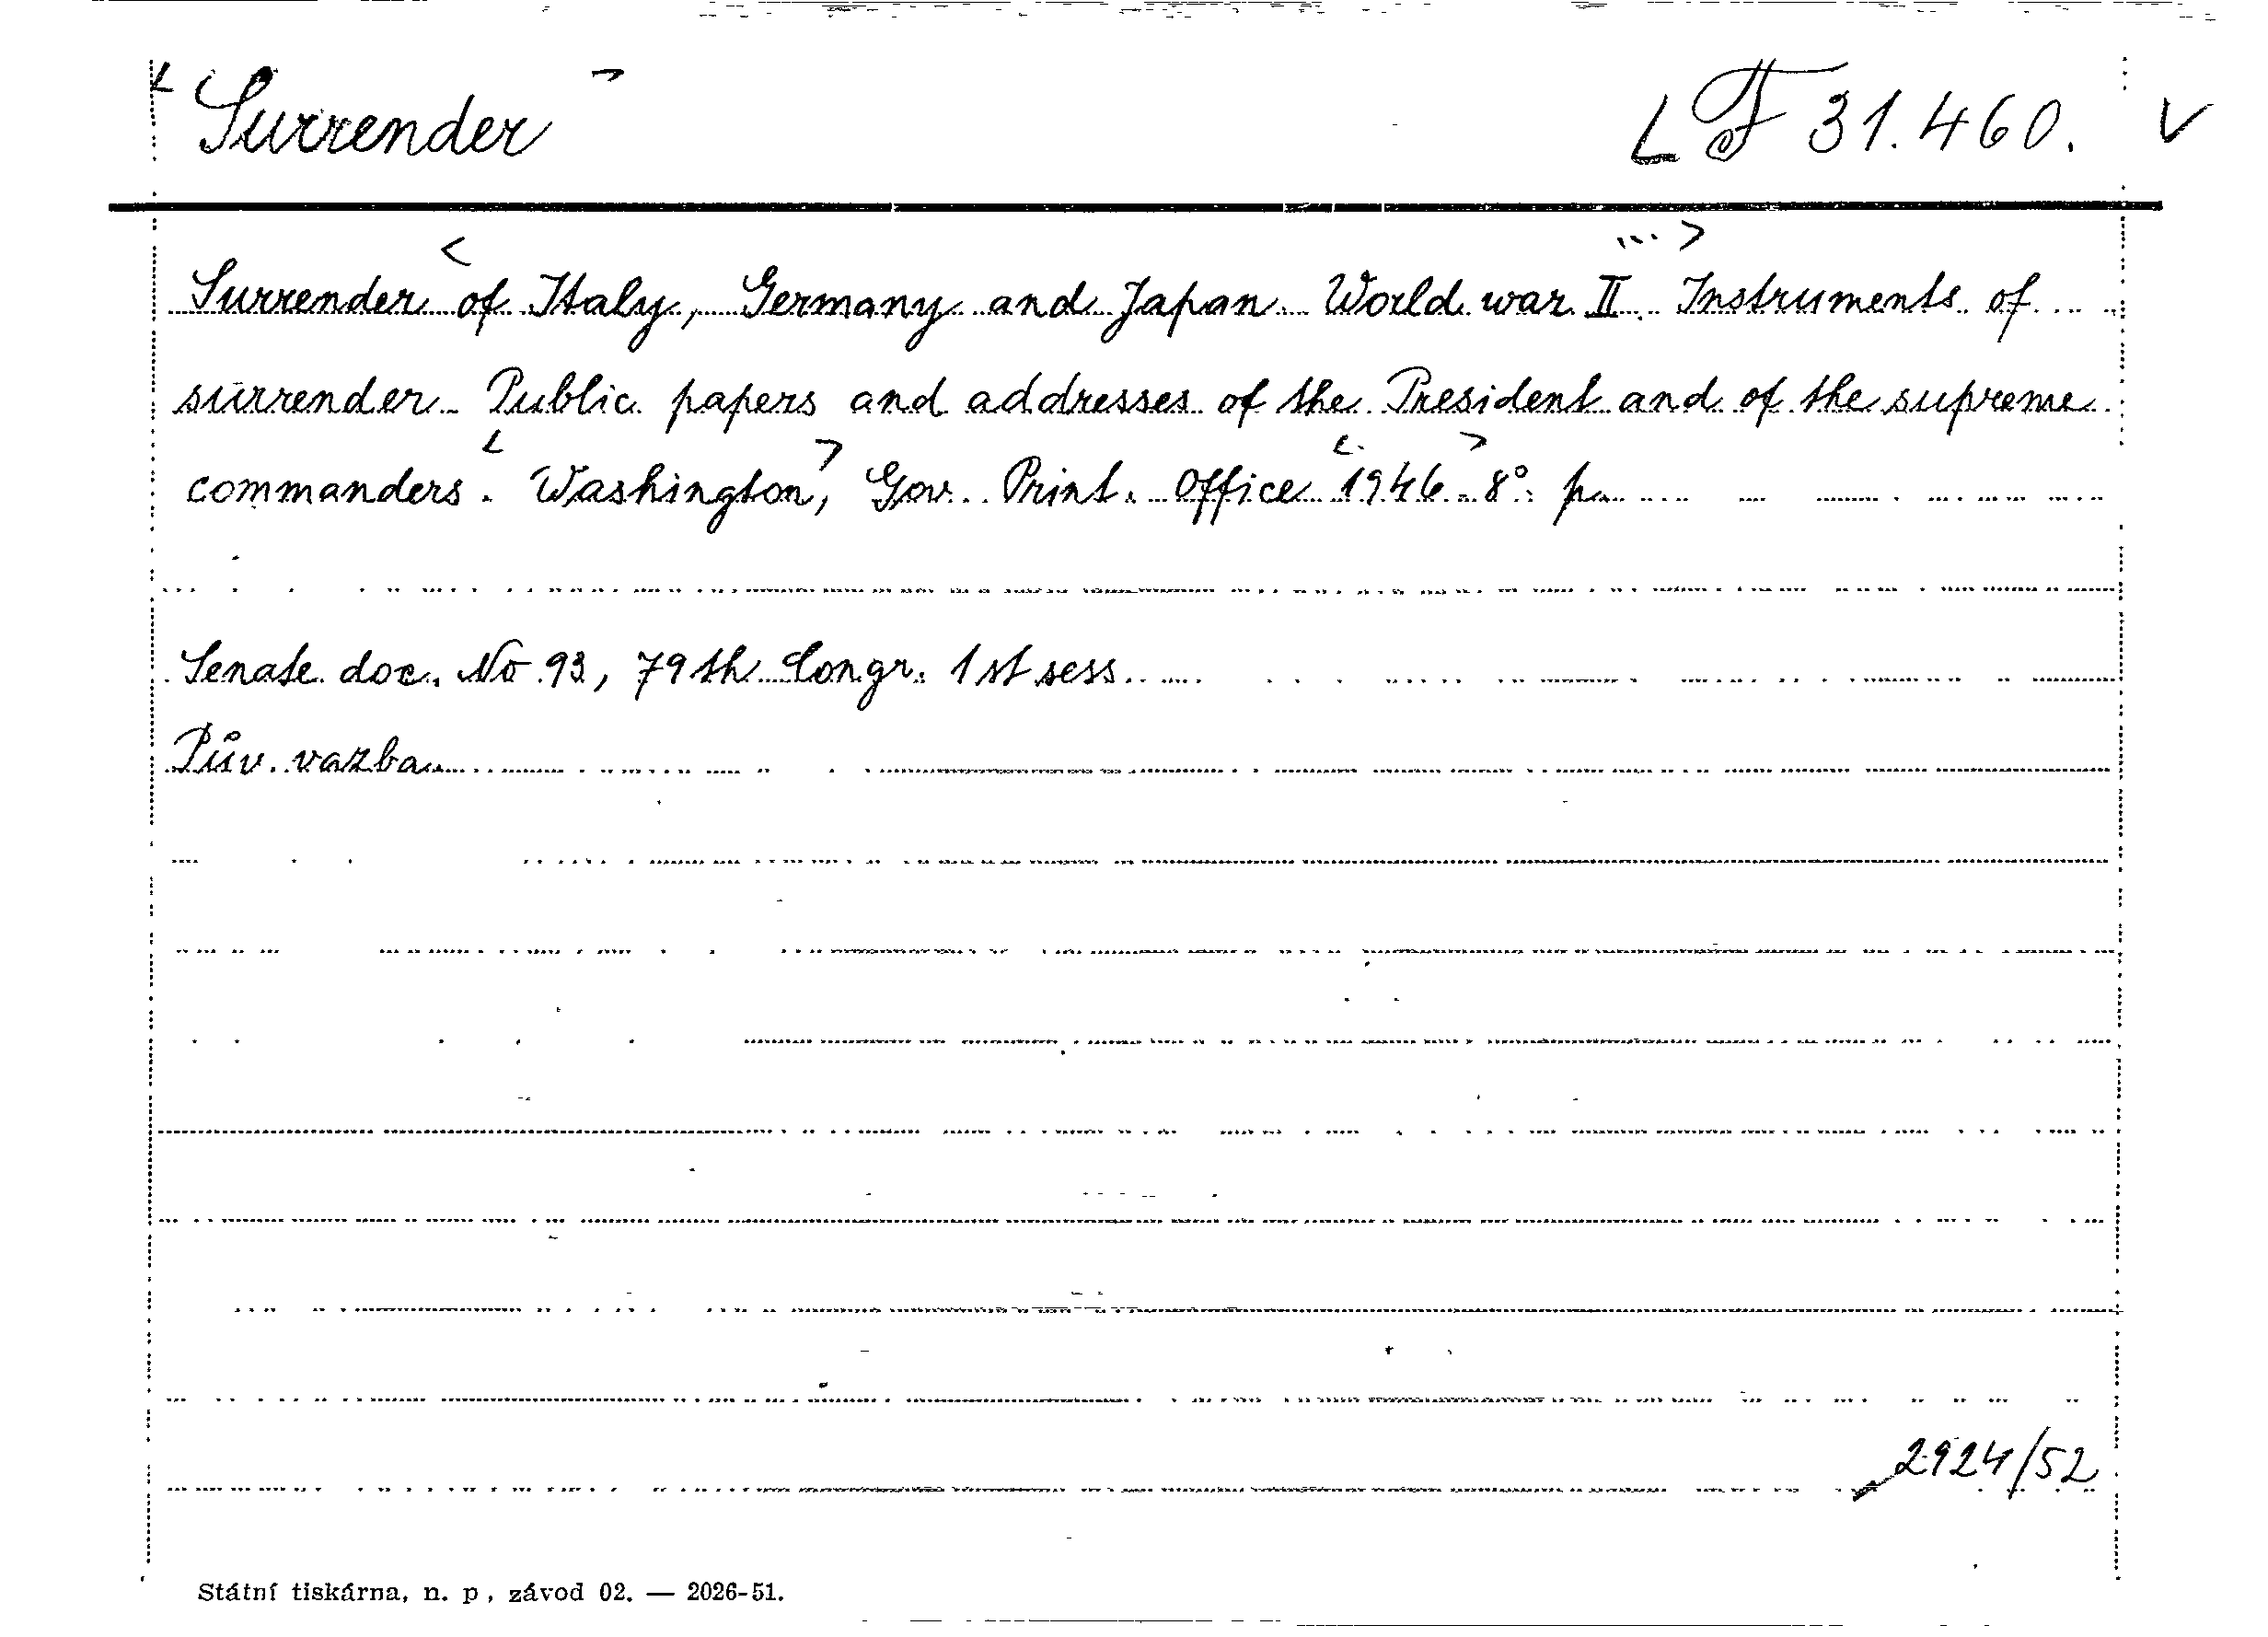 Surrender F 31.460.
Surrender of Italy, Germany and Japan. World war II. Instruments of
surrender. Public papers and addresses of the President and of the supreme
commanders. Washington, Gov. Print. Office 1946. 8°. p.
Senate doc. No 93, 79th Congr. 1st sess.
Pův. vazba.
2924/52
Státní tiskárna, n. p., závod 02. — 2026-51.